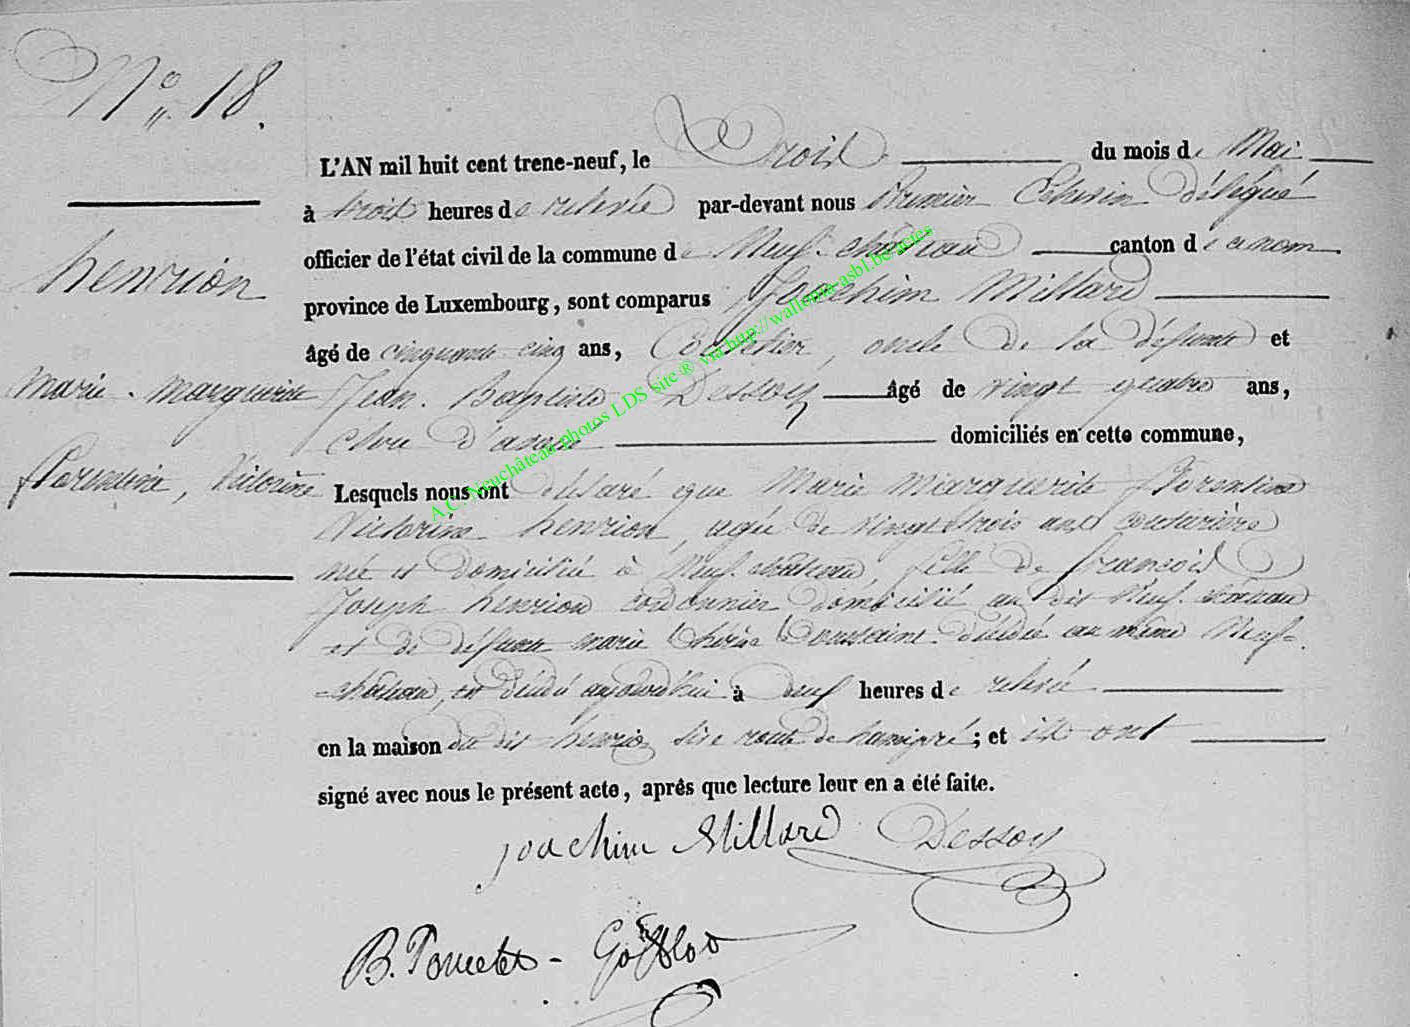 N° 18.
L'AN mil huit cent trene-neuf, le Trois du mois de Mai
à trois heures de relevée par-devant nous Premier Echevin délégué
officier de l'état civil de la commune de Neuf-château canton de ce nom
henrion
province de Luxembourg, sont comparus Joachim Millard
âgé de cinquante cinq ans, oncle de la défunte et
Marie - Marguerite
Jean Baptiste Dessoy âgé de vingt quatre ans,
domiciliés en cette commune,
florentine, Victorine
Lesquels nous ont déclaré que Marie Marguerite florentine
Victorine henrion, agée de vingt trois ans couturière
née et domiciliée à Neuf-château, fille de françois
Joseph henrion cordonnier domicilié au dit Neuf-château
et de défunte marie thérèse Toussaint décédée au même Neuf-
château, est décédée aujourd'hui à heures de relevé
en la maison du dit henrion sise route de hamipré; et ils ont
signé avec nous le présent acte, après que lecture leur en a été faite.
joachim Millard Dessoy
B. Poncelet -
A.C. Neuchâteau photos LDS Site ® via http://wallonia-asbl.be/actes